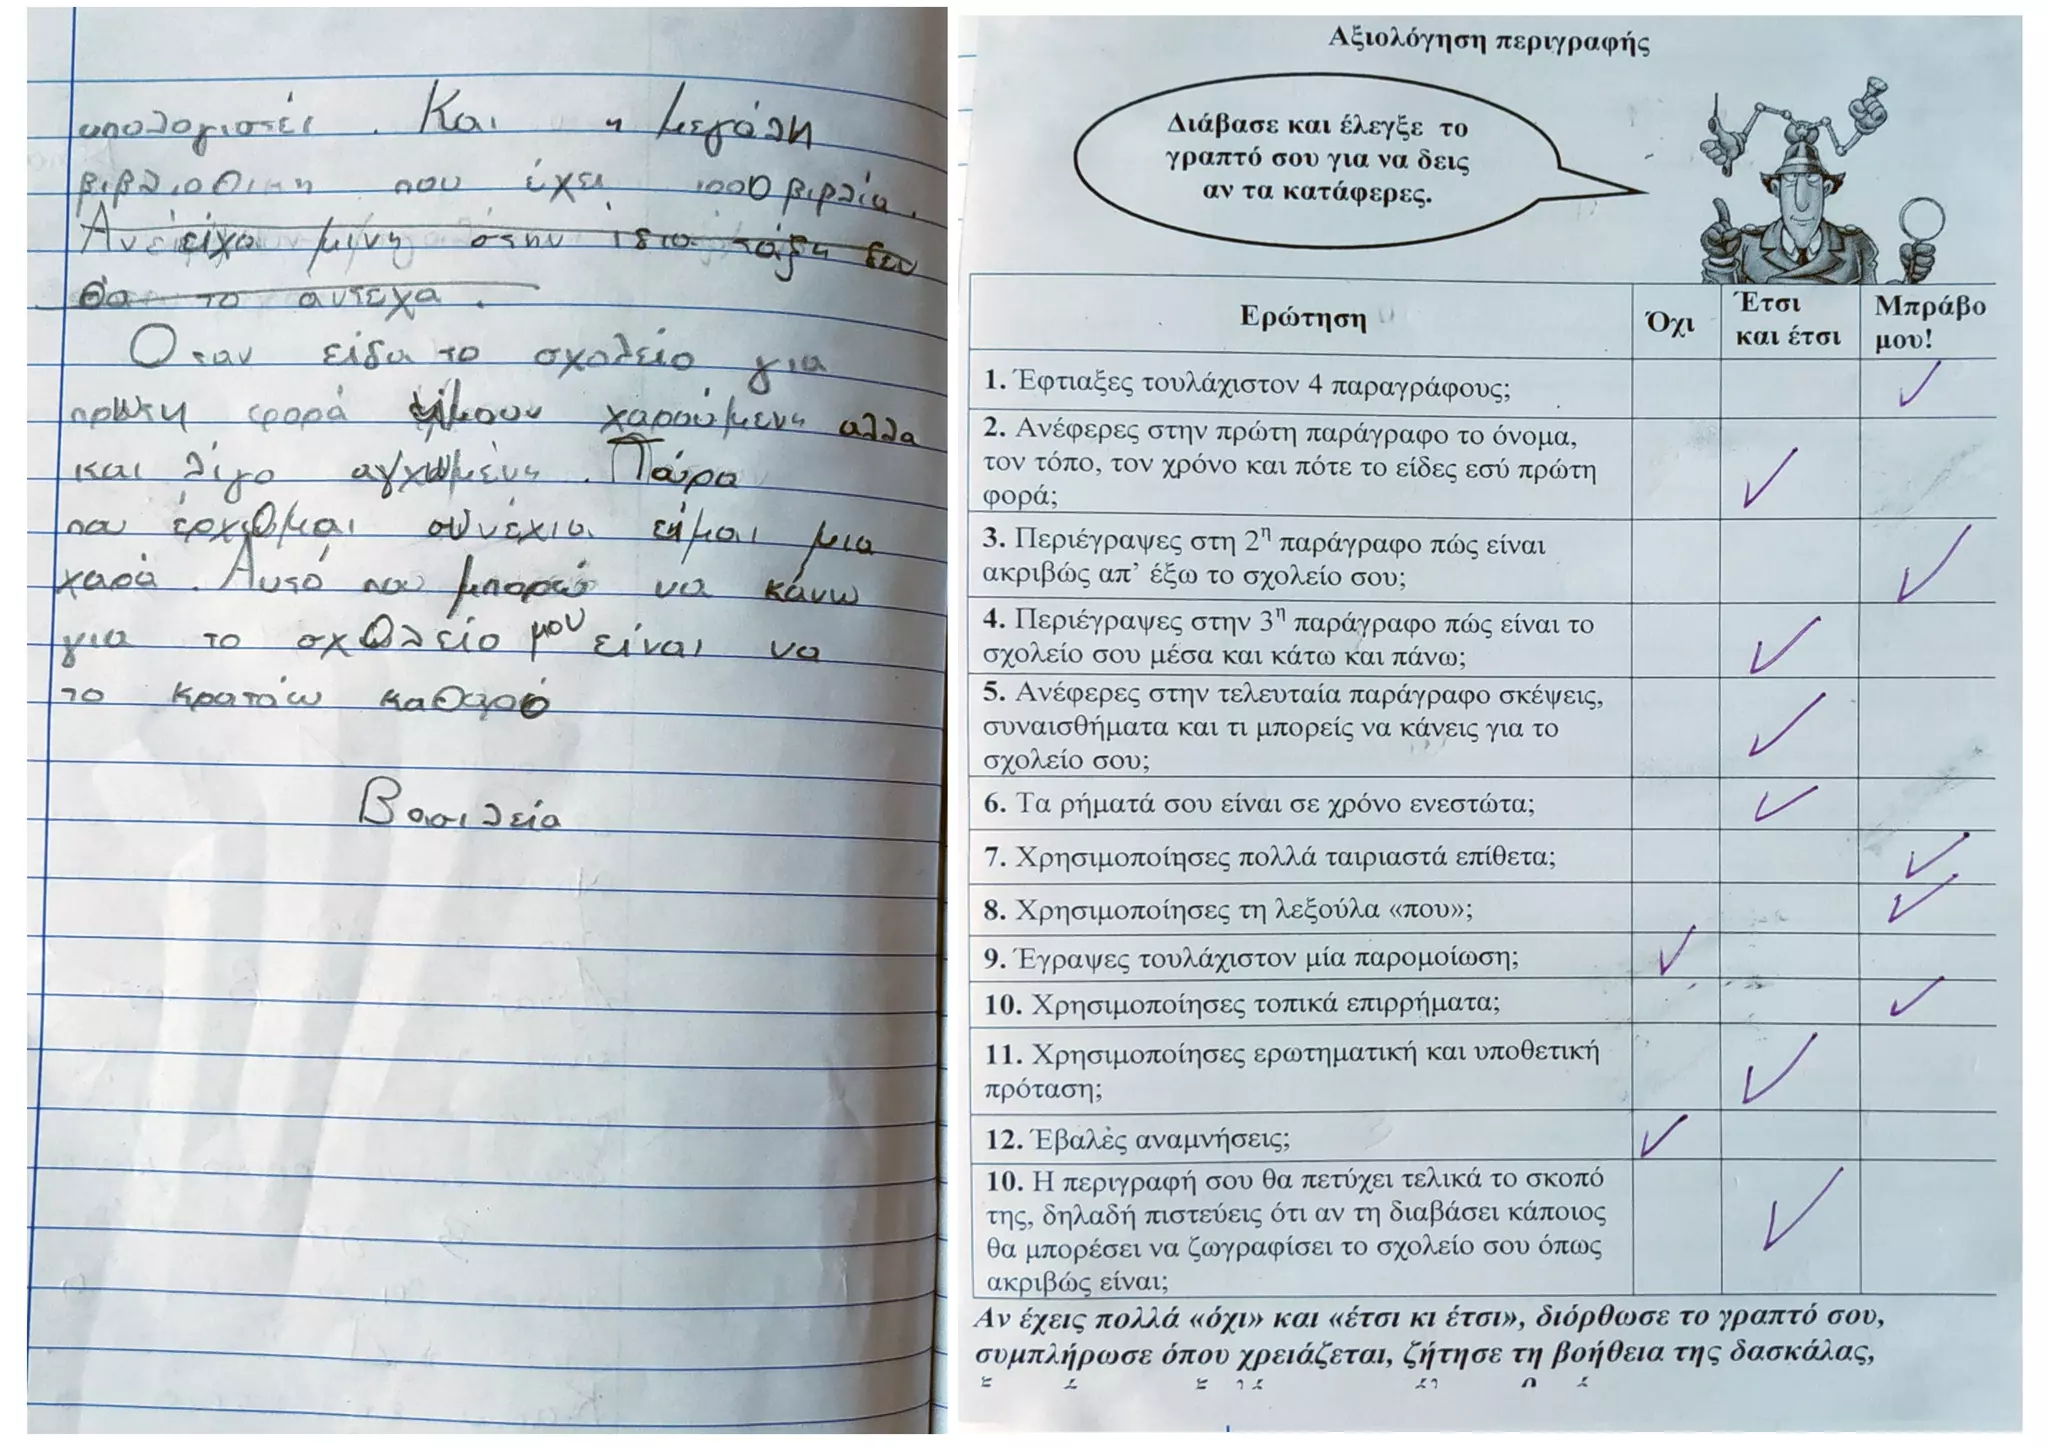 υπολογιστές. Και η μεγάλη
βιβλιοθικη που έχει 1000 βιβλία.
Αν είχα μίνη στην ίδια τάξη δεν
θα το αντεχα.
Οταν είδα το σχολείο για
πρώτη φορά ήμουν χαρούμενη αλλα
και λίγο αγχωμένη. Τώρα
που έρχομαι συνέχια είμαι μια
χαρά. Αυτό που μπορώ να κάνω
για το σχολείο μου είναι να
το κρατάω καθαρό
Βασιλεία
Αξιολόγηση περιγραφής
Διάβασε και έλεγξε το
γραπτό σου για να δεις
αν τα κατάφερες.
Ερώτηση Όχι Έτσι και έτσι Μπράβο μου!
1. Έφτιαξες τουλάχιστον 4 παραγράφους;
2. Ανέφερες στην πρώτη παράγραφο το όνομα,
τον τόπο, τον χρόνο και πότε το είδες εσύ πρώτη
φορά;
3. Περιέγραψες στη 2η παράγραφο πώς είναι
ακριβώς απ' έξω το σχολείο σου;
4. Περιέγραψες στην 3η παράγραφο πώς είναι το
σχολείο σου μέσα και κάτω και πάνω;
5. Ανέφερες στην τελευταία παράγραφο σκέψεις,
συναισθήματα και τι μπορείς να κάνεις για το
σχολείο σου;
6. Τα ρήματά σου είναι σε χρόνο ενεστώτα;
7. Χρησιμοποίησες πολλά ταιριαστά επίθετα;
8. Χρησιμοποίησες τη λεξούλα «που»;
9. Έγραψες τουλάχιστον μία παρομοίωση;
10. Χρησιμοποίησες τοπικά επιρρήματα;
11. Χρησιμοποίησες ερωτηματική και υποθετική
πρόταση;
12. Έβαλες αναμνήσεις;
10. Η περιγραφή σου θα πετύχει τελικά το σκοπό
της, δηλαδή πιστεύεις ότι αν τη διαβάσει κάποιος
θα μπορέσει να ζωγραφίσει το σχολείο σου όπως
ακριβώς είναι;
Αν έχεις πολλά «όχι» και «έτσι κι έτσι», διόρθωσε το γραπτό σου,
συμπλήρωσε όπου χρειάζεται, ζήτησε τη βοήθεια της δασκάλας,